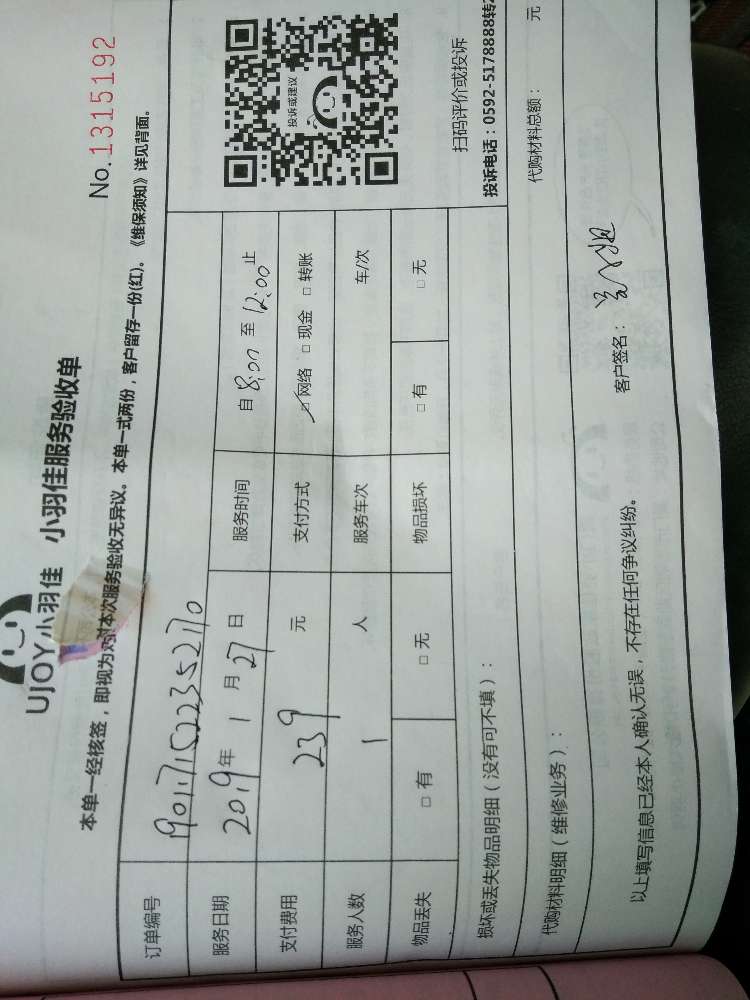 UJOY小羽佳 小羽佳服务验收单
No.1315192
本单一经核签，即视为对本次服务验收无异议。本单一式两份，客户留存一份(红)。《维保须知》详见背面。
订单编号 1901171522352170
服务日期 2019年 1 月 27 日 服务时间 自 8:00 至 12:00 止
支付费用 239 元 支付方式 ☑网络 □现金 □转账
服务人数 1 人 服务车次 车/次
物品丢失 □有 □无 物品损坏 □有 □无
投诉或建议
扫码评价或投诉
投诉电话：0592-5178888转2
损坏或丢失物品明细（没有可不填）：
代购材料明细（维修业务）： 代购材料总额： 元
以上填写信息已经本人确认无误，不存在任何争议纠纷。 客户签名：